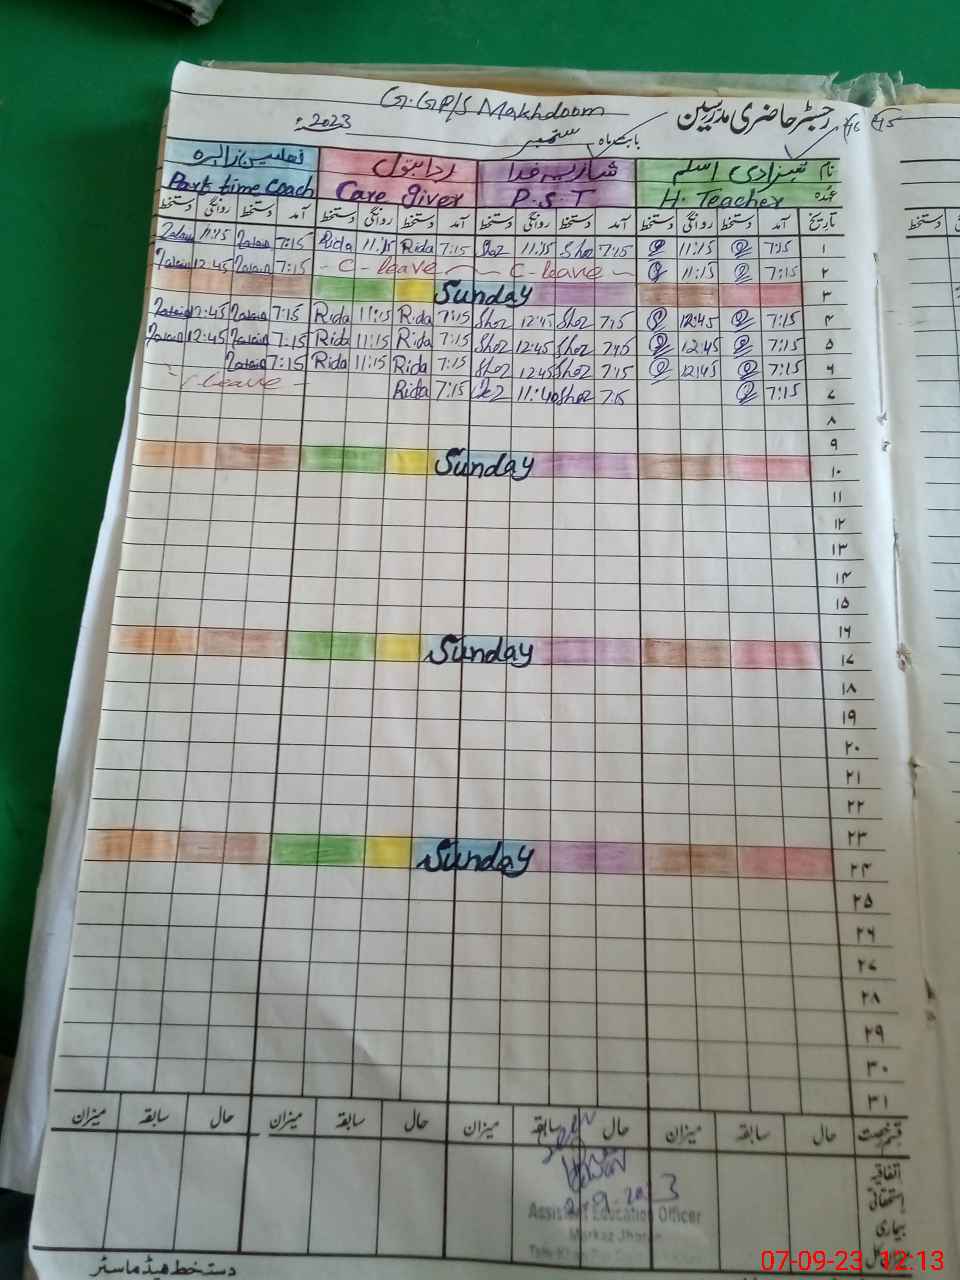 G.GP/S Makhdoom
رجسٹر حاضری مدرسین
بابت ماہ ستمبر 2023ء
نام شہزادی اسلم شازیہ فدا ردا بتول
عہدہ H. Teacher P.S.T Care giver Part time Coach
تاریخ آمد دستخط روانگی دستخط آمد دستخط روانگی دستخط آمد دستخط روانگی دستخط آمد دستخط روانگی دستخط
۱ 7:15 11:15 7:15 Shaz 11:15 Shaz 7:15 Rida 11:15 Rida 7:15 11:15
۲ 7:15 11:15 C-leave C-leave 7:15 12:45
۳ Sunday
۴ 7:15 12:45 7:15 Shaz 12:45 Shaz 7:15 Rida 11:15 Rida 7:15 12:45
۵ 7:15 12:45 7:15 Shaz 12:45 Shaz 7:15 Rida 11:15 Rida 7:15 12:45
۶ 7:15 12:45 7:15 Shaz 12:45 Shaz 7:15 Rida 11:15 Rida 7:15
۷ 7:15 7:15 Shaz 11:40 7:15 Rida Leave
۸
۹
۱۰ Sunday
۱۱
۱۲
۱۳
۱۴
۱۵
۱۶
۱۷ Sunday
۱۸
۱۹
۲۰
۲۱
۲۲
۲۳
۲۴ Sunday
۲۵
۲۶
۲۷
۲۸
۲۹
۳۰
۳۱
قسم رخصت حال سابقہ میزان حال سابقہ میزان حال سابقہ میزان حال سابقہ میزان
اتفاقیہ
استحقاقی
بیماری
2.9.2023
Assistant Education Officer
Markaz Jhar
دستخط ہیڈ ماسٹر
07-09-23 12:13